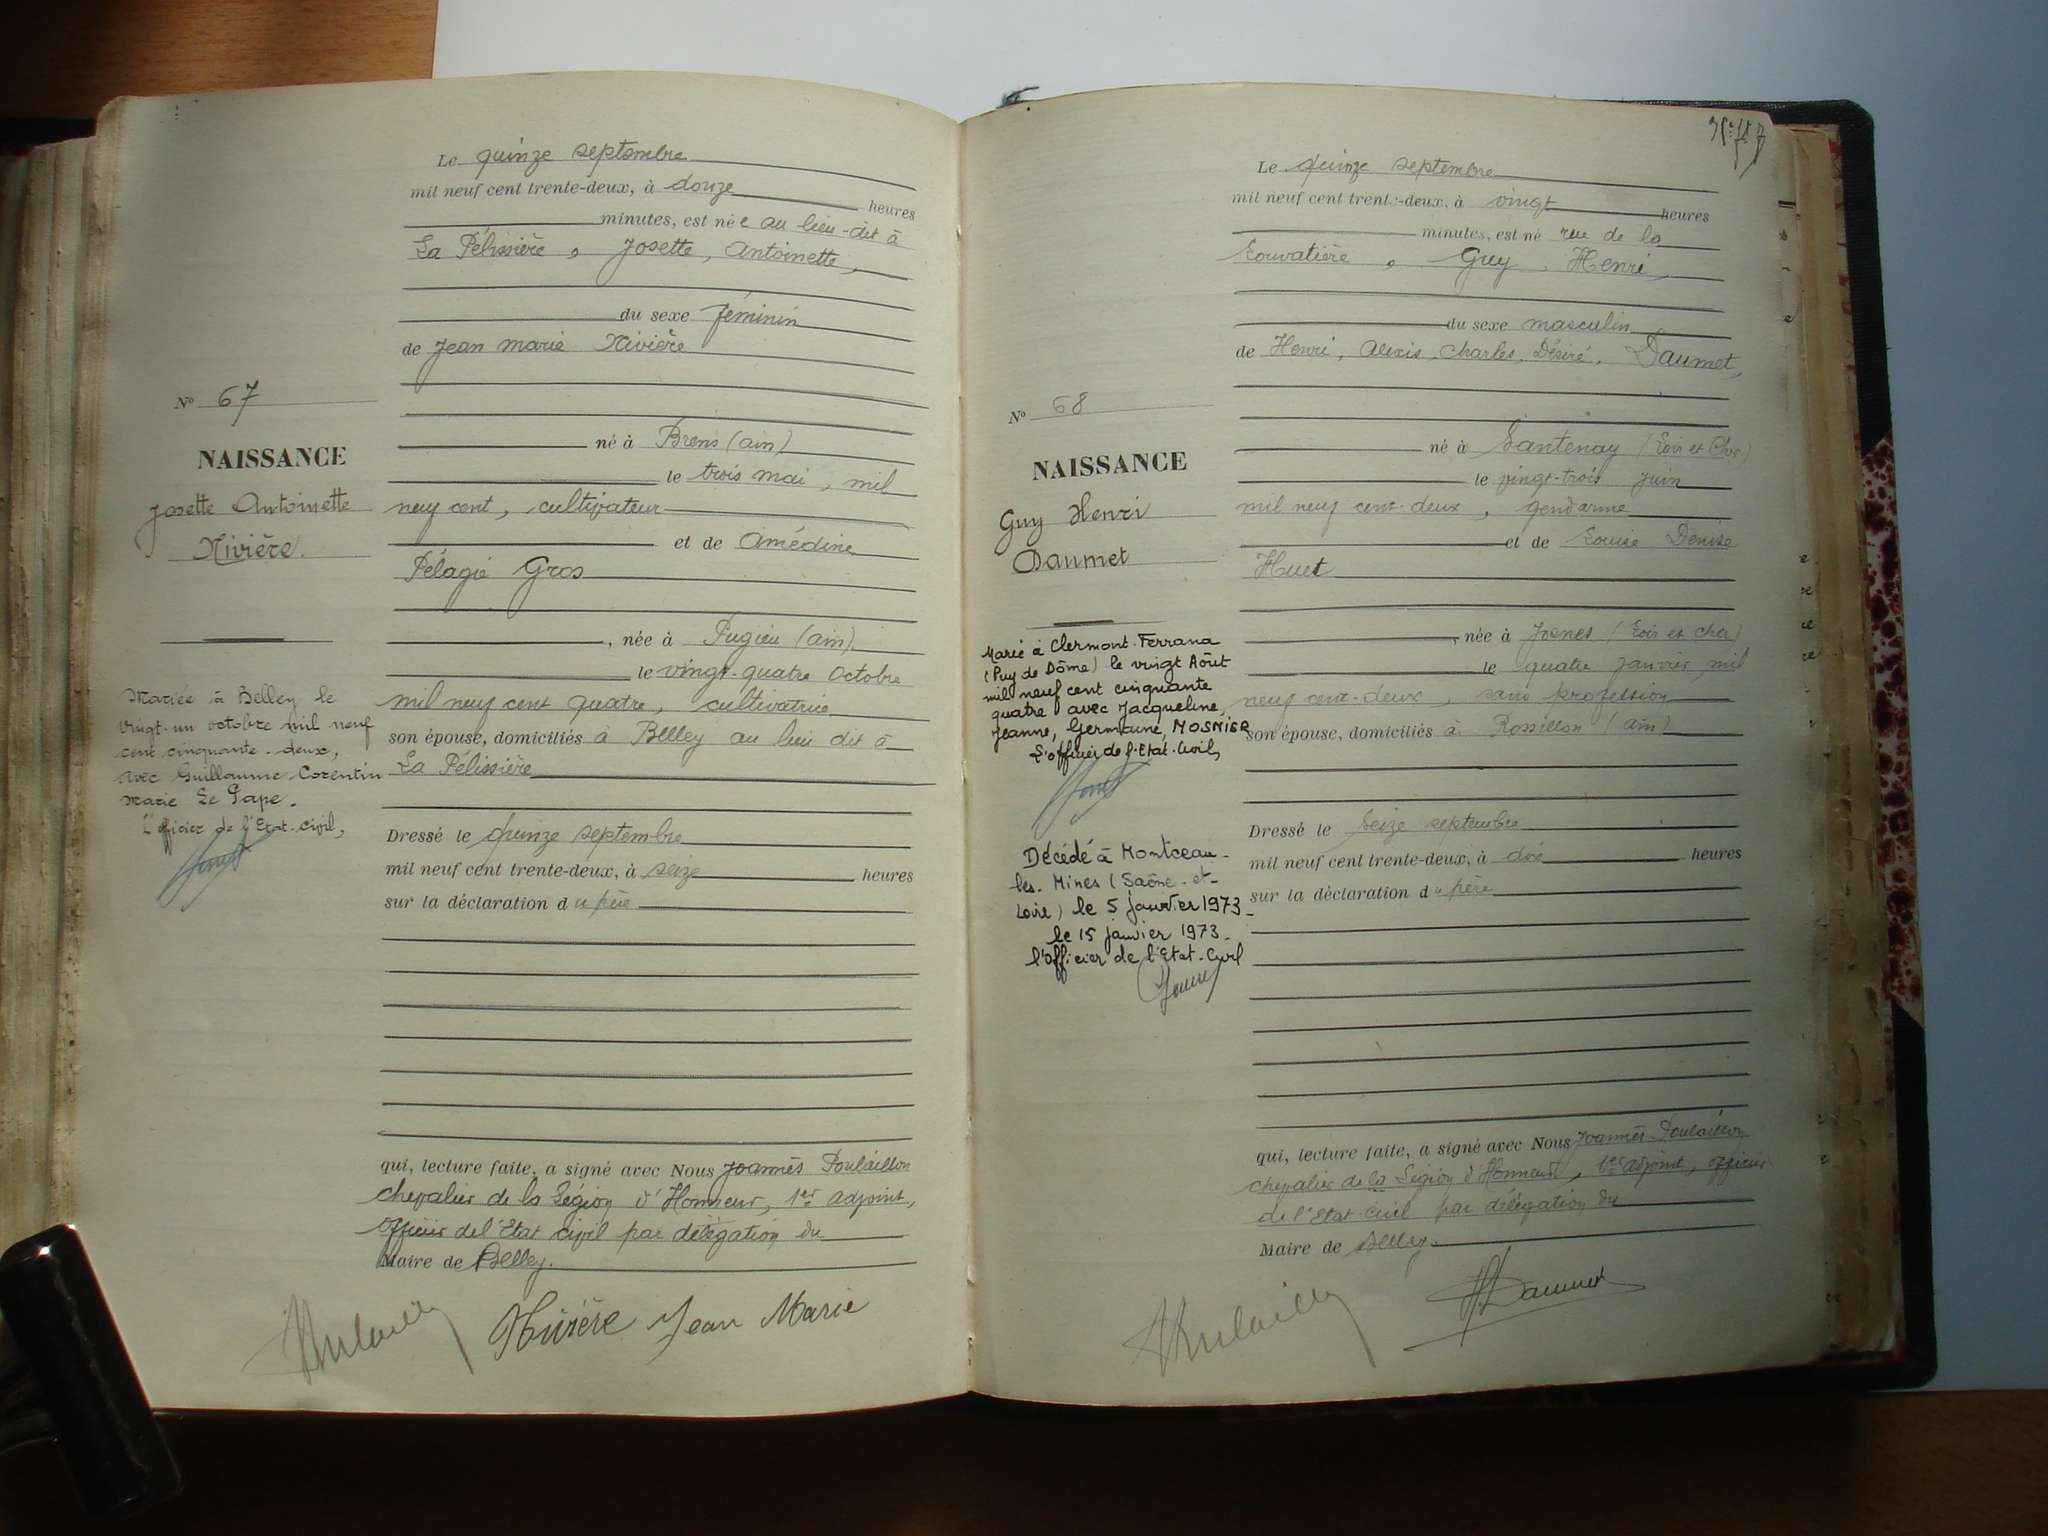 Le quinze septembre
mil neuf cent trente-deux, à douze heures
minutes, est née au lieu-dit à
La Pélissière, Josette, Antoinette,
du sexe féminin
de Jean marie Nivière
N° 67
né à Brens (ain)
NAISSANCE
le trois mai, mil
Josette Antoinette
neuf cent, cultivateur
Nivière.
et de Amédine
Pélagie Gros
, née à Pugieu (ain)
le vingt-quatre octobre
mil neuf cent quatre, cultivatrice
son épouse, domiciliés à Belley au lieu dit à
La Pélissière
Mariée à Belley le
vingt-un octobre mil neuf
cent cinquante-deux,
avec Guillaume Corentin
Marie Le Pape.
L'officier de l'Etat-civil,
Dressé le quinze septembre
mil neuf cent trente-deux, à seize heures
sur la déclaration du père
qui, lecture faite, a signé avec Nous Joannès Poulaillon
chevalier de la Légion d'Honneur, 1er adjoint,
officier de l'Etat civil par délégation du
Maire de Belley.
Nivière Jean Marie
Le quinze septembre
mil neuf cent trente-deux, à vingt heures
minutes, est né rue de la
Louvatière, Guy, Henri,
du sexe masculin
de Henri, Alexis, Charles, Désiré, Daumet,
N° 68
né à Santenay (Loir et Cher)
NAISSANCE
le vingt-trois juin
Guy Henri
mil neuf cent-deux, gendarme
Daumet
et de Louise Denise
Huet
, née à Josnes (Loir et cher)
le quatre janvier, mil
neuf cent-deux, sans profession
son épouse, domiciliés à Rossillon (ain)
Marié à Clermont-Ferrand
(Puy de Dôme) le vingt Août
mil neuf cent cinquante
quatre avec Jacqueline,
Jeanne, Germaine, MOSNIER
L'officier de l'Etat-Civil,
Décédé à Montceau-
les-Mines (Saône-et-
Loire) le 5 janvier 1973_
le 15 janvier 1973_
l'officier de l'Etat-Civil
Dressé le seize septembre
mil neuf cent trente-deux, à dix heures
sur la déclaration du père
qui, lecture faite, a signé avec Nous Joannès Poulaillon
chevalier de la Légion d'Honneur, 1er adjoint, officier
de l'Etat-civil par délégation du
Maire de Belley.
Daumet